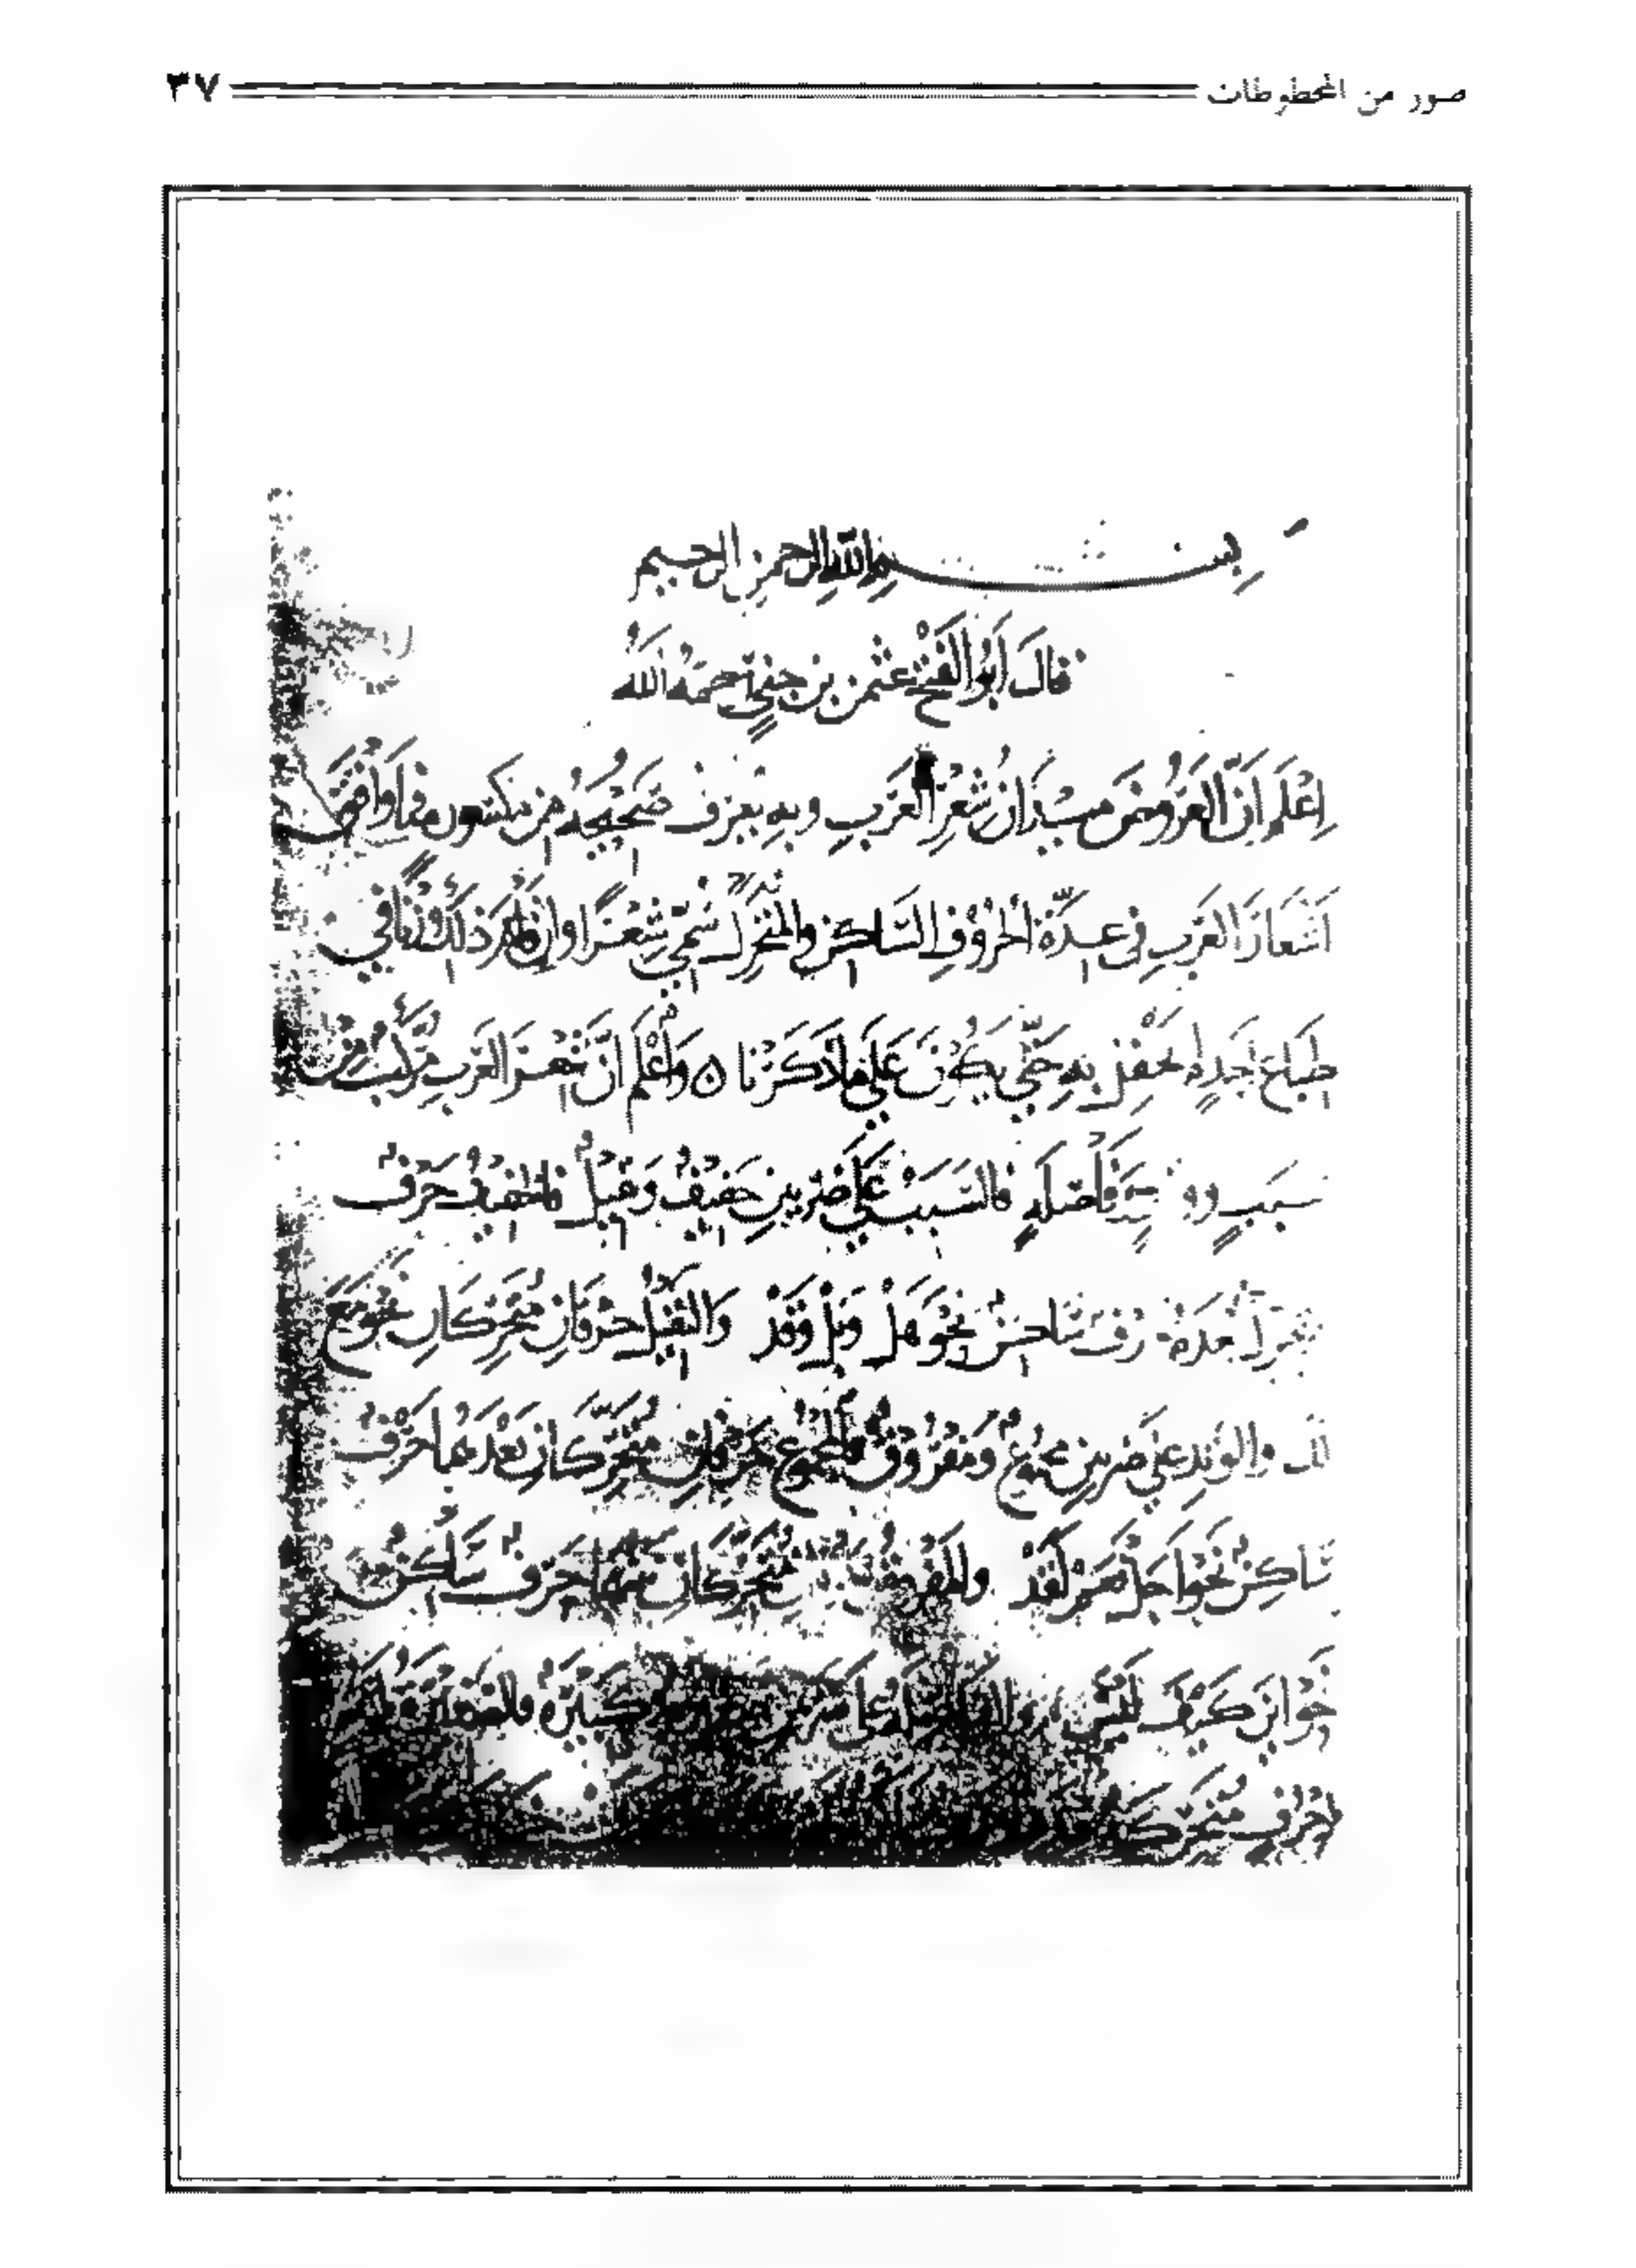 صور من المخطوطات ٣٧
بسم الله الرحمن الرحيم
قَالَ أَبُو الفَتْحِ عُثْمٰن بن جِنِّي رَحمَهُ اللهُ
اِعْلَم أَنَّ العَرُوضَ مِيْزَانُ شِعْرِ العَرَبِ وبِهِ يُعرَف صَحِيْحُهُ مِن مَكسُورِه فَمَا وَافَقَ
أَشعَارَ العَرَبِ فى عِدَّةِ الْحُرُوْفِ السَّاكِن والمُتَحَرِّك سُمِّي شِعْرًا وَإِن ذَلكَ في
طِبَاع أَحَدٍ لم يُحْفَل بِهِ حَتَّى يَكُوْنَ عَلَى مَا ذَكَرْنَا ٥ وَاعْلَم أَنَّ شِعْرَ العَرَبِ مُرَكَّبٌ مِنْ
سَبَبٍ وَفَاصِلَةٍ فَالسَّبَبُ عَلَى ضَرْبَيْنِ خَفِيْفٌ وَثَقِيْلٌ فَالخَفِيْفُ حَرْفٌ
مُتَحَرِّكٌ بَعْدَهُ حرْفٌ سَاكِنٌ نَحْوَ هَلْ وَبَلْ وَقَدْ وَالثَّقِيْلُ حَرْفَانِ مُتَحَرِّكَانِ نَحْوَ مَعَ
لَكَ وَالوَتِدُ عَلَى ضَرْبَيْنِ مَجْمُوْعٌ وَمَفْرُوْقٌ فَالمَجْمُوْعُ حَرْفَانِ مُتَحَرِّكَانِ بَعْدَهُمَا حَرْفٌ
سَاكِنٌ نَحْوَ أَجَلْ نَعَمْ لَقَدْ وَالمَفْرُوْقُ مُتَحَرِّكَانِ بَيْنَهُمَا حَرْفٌ سَاكِنٌ
نَحْوَ أَيْنَ كَيْفَ عَلَى كَبِيْرَةٌ فَالصَّغِيْرَةُ
أَحْرُفٍ مُتَحَرِّكَةٍ